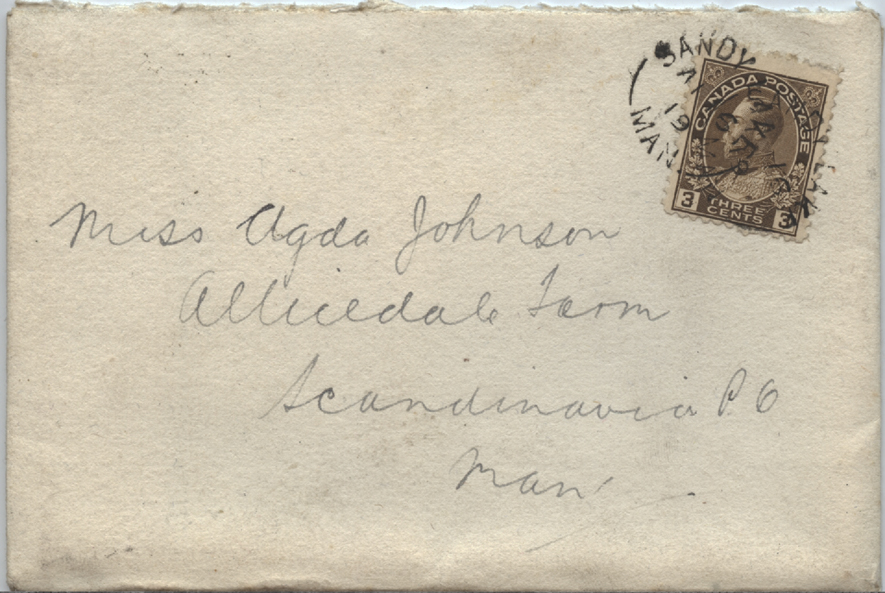 SANDY LAKE
MAN
CANADA POSTAGE
3 THREE CENTS 3
Miss Agda Johnson
Allicedale Farm
Scandinavia P O
Man